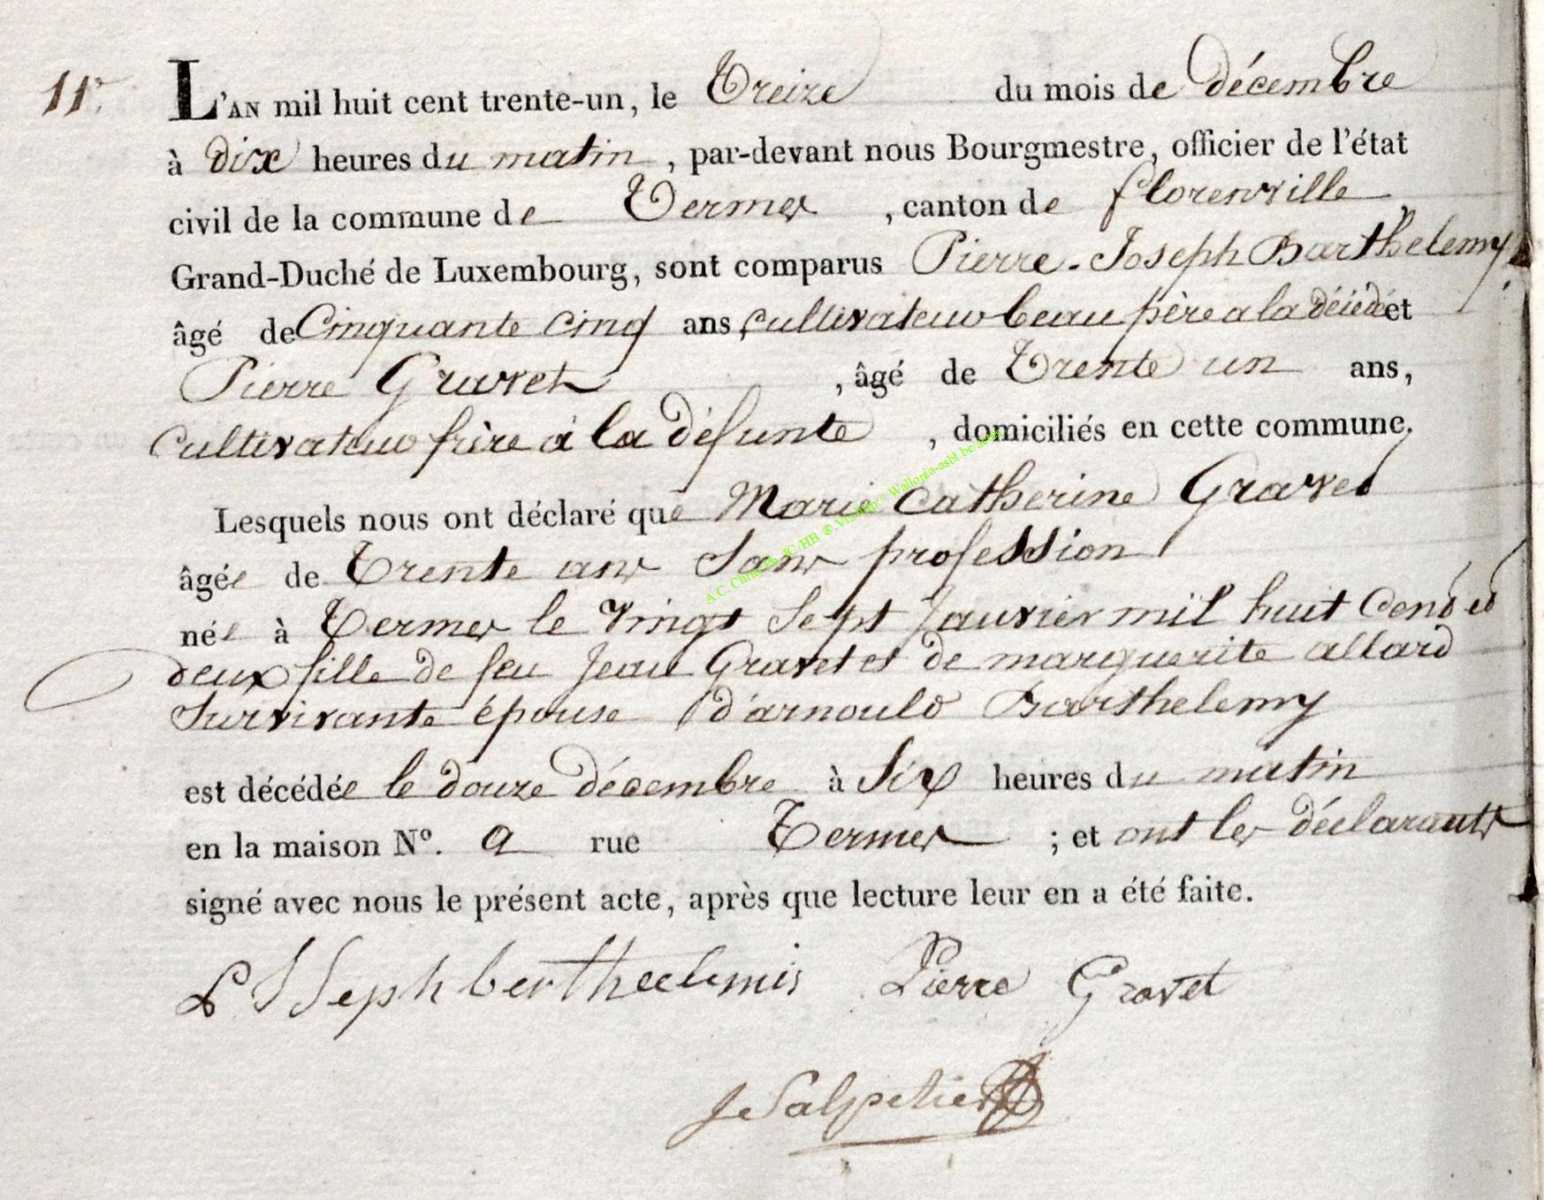 11.
L'AN mil huit cent trente-un, le Treize du mois de décembre
à dix heures du matin, par-devant nous Bourgmestre, officier de l'état
civil de la commune de Termes, canton de florenville
Grand-Duché de Luxembourg, sont comparus Pierre-Joseph Barthelemy
âgé de Cinquante cinq ans cultivateur beau père a la décédé et
Pierre Gravet, âgé de Trente un ans,
Cultivateur frère à la défunte, domiciliés en cette commune.
Lesquels nous ont déclaré que Marie Catherine Gravet
âgée de Trente ans Sans profession
née à Termes le vingt Sept Janvier mil huit Cent et
deux fille de feu Jean Gravet et de marguerite allard
Survivante épouse d'arnould Barthelemy
est décédée le douze décembre à Six heures du matin
en la maison N°. 9 rue Termes ; et ont les déclarants
signé avec nous le présent acte, après que lecture leur en a été faite.
Pierre Gravet
J Salpetier